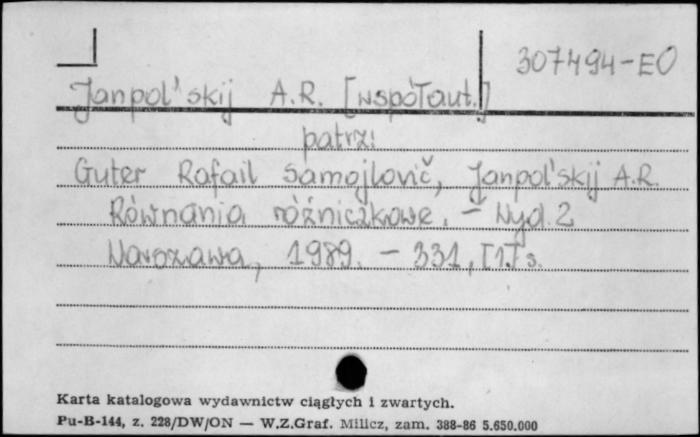 307494-EO
Janpol'skij A.R. [współaut.]
patrz:
Guter Rafail Samojlovič, Janpol'skij A.R.
Równania różniczkowe. – Wyd. 2
Warszawa, 1989. – 331, [1] s.
Karta katalogowa wydawnictw ciągłych i zwartych.
Pu-B-144, z. 228/DW/ON — W.Z.Graf. Milicz, zam. 388-86 5.650.000